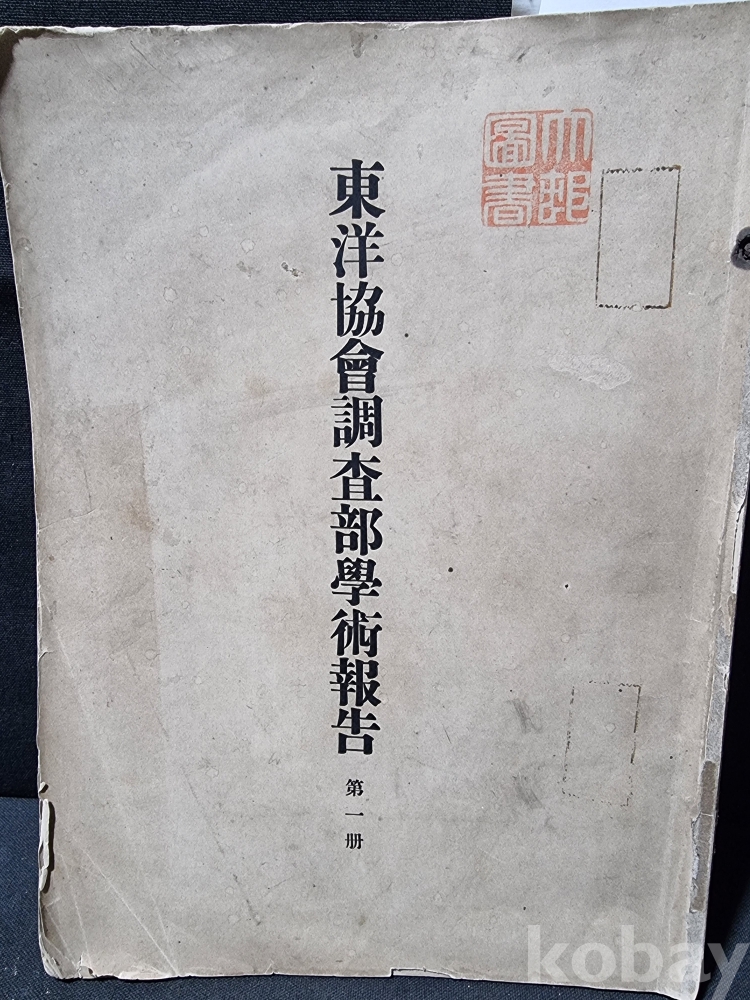 東洋協會調査部學術報告
第一册
圖書
kobay